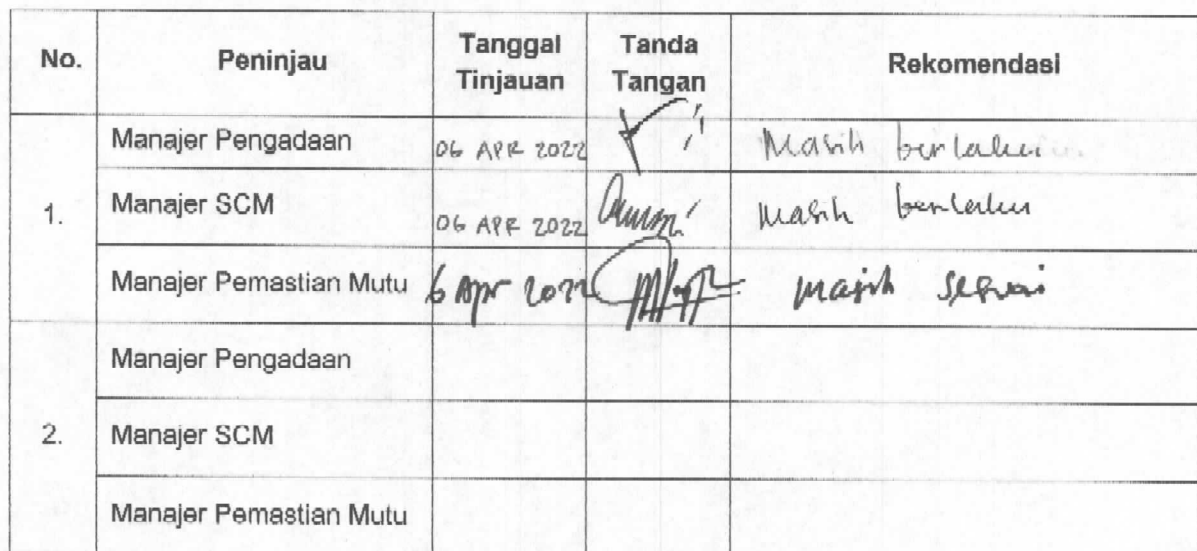 No. Peninjau Tanggal Tinjauan Tanda Tangan Rekomendasi
Manajer Pengadaan 06 APR 2022 Masih berlaku
1. Manajer SCM 06 APR 2022 Masih berlaku
Manajer Pemastian Mutu 6 Apr 2022 masih sesuai
Manajer Pengadaan
2. Manajer SCM
Manajer Pemastian Mutu